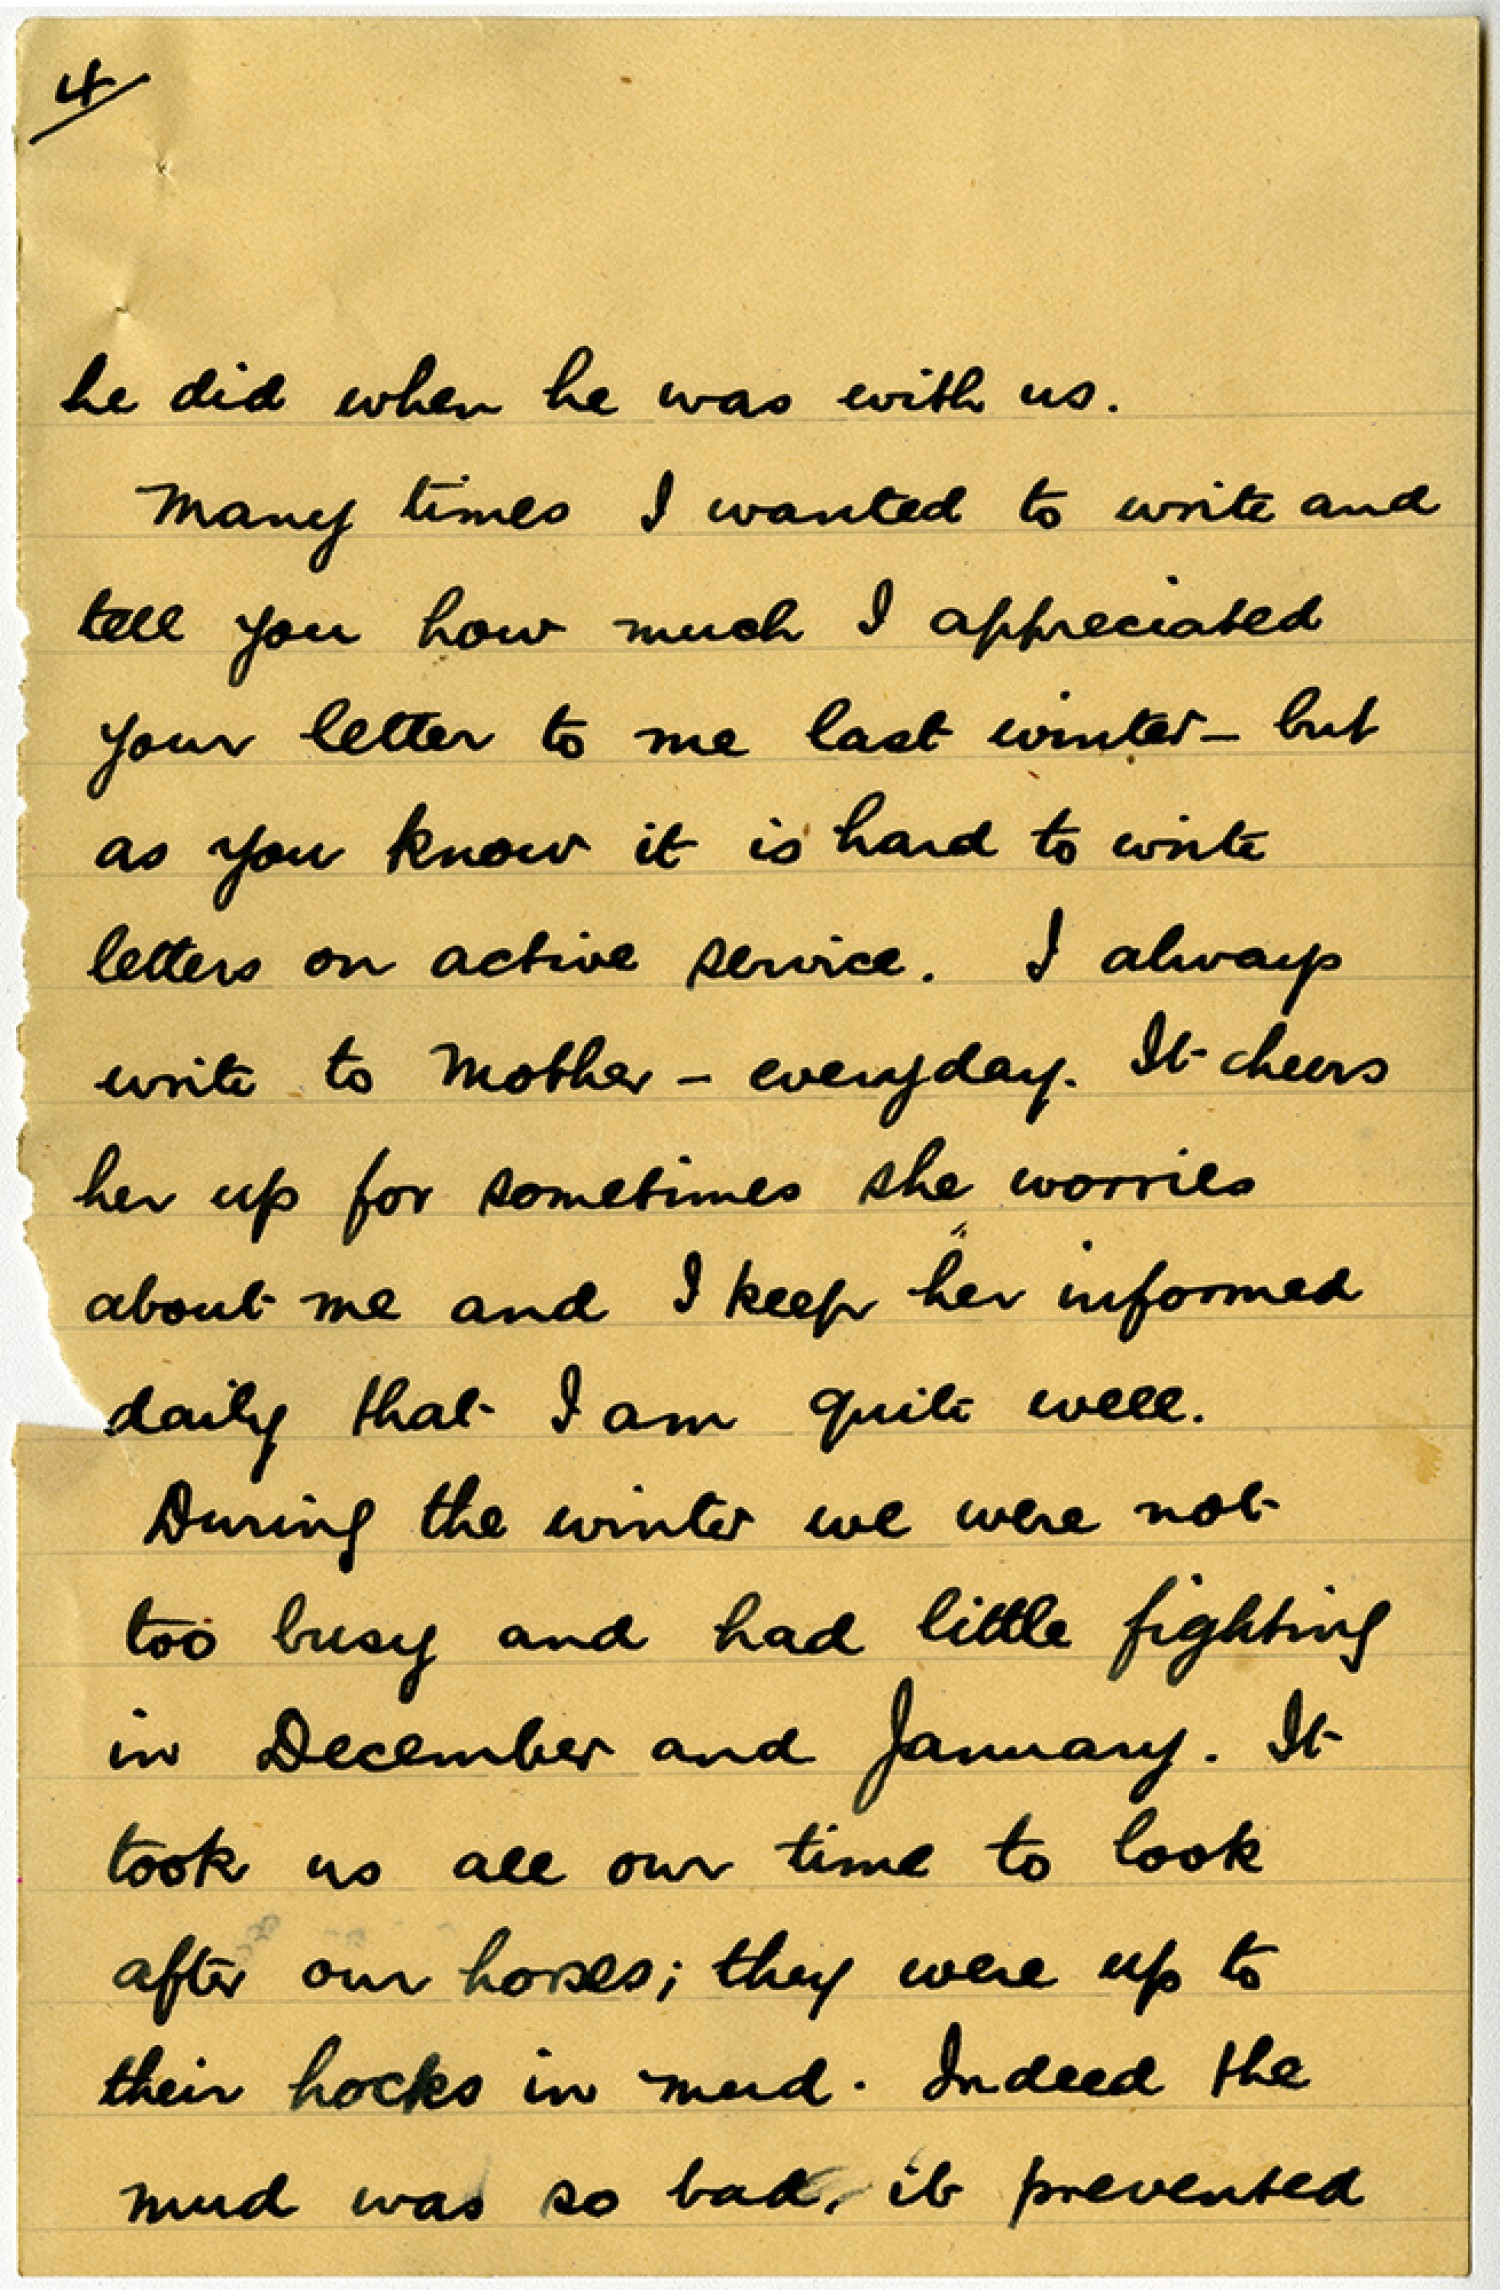 4
he did when he was with us.
Many times I wanted to write and
tell you how much I appreciated
your letter to me last winter – but
as you know it is hard to write
letters on active service. I always
write to Mother – everyday. It cheers
her up for sometimes she worries
about me and I keep her informed
daily that I am quite well.
During the winter we were not
too busy and had little fighting
in December and January. It
took us all our time to look
after our horses; they were up to
their hocks in mud. Indeed the
mud was so bad, it prevented